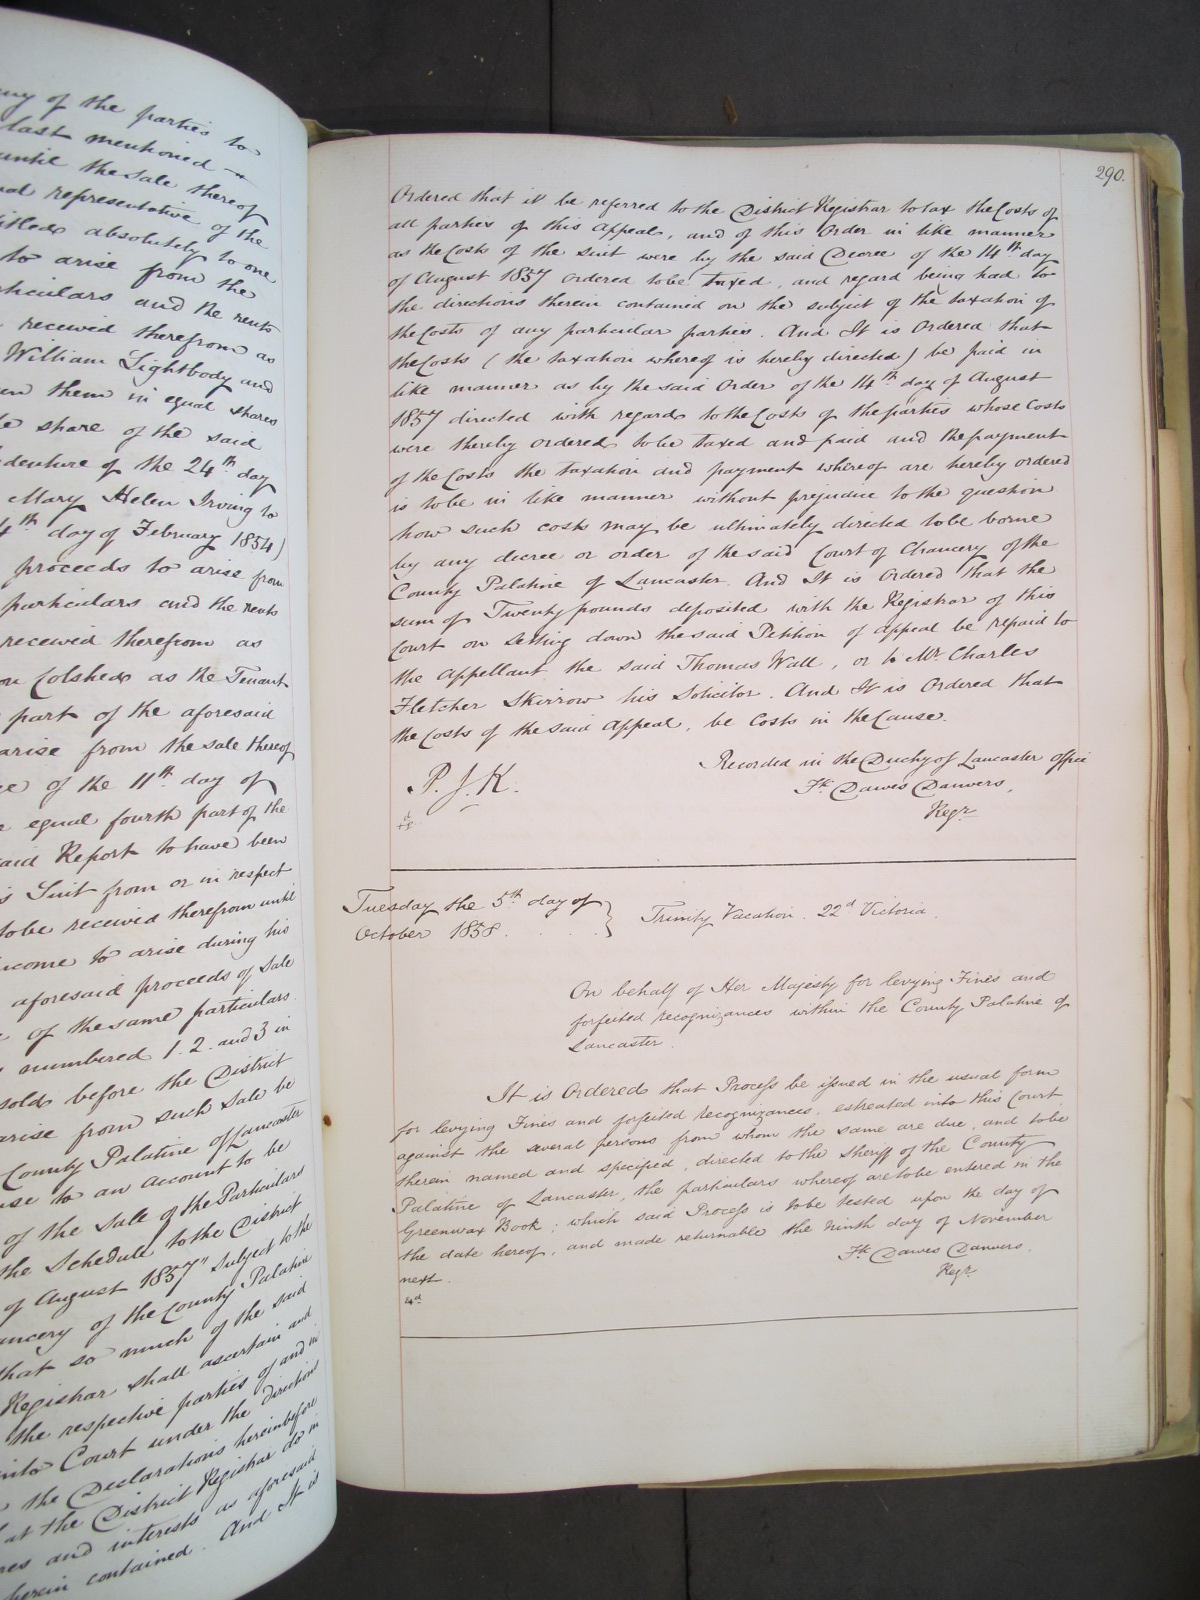 any of the parties to
last mentioned
until the sale thereof
representative of the
absolutely to one
to arise from the
particulars and the rents
received therefrom as
William Lightbody and
them in equal shares
share of the said
Indenture of the 24th day
Mary Helen Irving to
4th day of February 1854)
proceeds to arise from
particulars and the rents
received therefrom as
Colshed as the Tenant
part of the aforesaid
arise from the sale thereof
of the 11th day of
equal fourth part of the
said Report to have been
Suit from or in respect
to be received therefrom until
income to arise during his
aforesaid proceeds of sale
of the same particulars
numbered 1. 2. and 3 in
sold before the District
arise from such Sale be
County Palatine of Lancaster
to an Account to be
of the Sale of the Particulars
the Schedule to the District
of August 1857" subject to the
Chancery of the County Palatine
that so much of the said
Registrar shall ascertain and
the respective parties of and in
into Court under the directions
the Declarations hereinbefore
that the District Registrar do in
and interests as aforesaid
herein contained. And It is
290.
Ordered that it be referred to the District Registrar to tax the Costs of
all parties of this Appeal, and of this Order in like manner
as the Costs of the suit were by the said Decree of the 14th day
of August 1857 ordered to be taxed, and regard being had to
the directions therein contained on the subject of the taxation of
the Costs of any particular parties. And It is Ordered that
the Costs (the taxation whereof is hereby directed) be paid in
like manner as by the said Order of the 14th day of August
1857 directed with regard to the Costs of the parties whose Costs
were thereby ordered to be taxed and paid and the payment
of the Costs the taxation and payment whereof are hereby ordered
is to be in like manner without prejudice to the question
how such costs may be ultimately directed to be borne
by any decree or order of the said Court of Chancery of the
County Palatine of Lancaster. And It is Ordered that the
sum of Twenty pounds deposited with the Registrar of this
Court on Setting down the said Petition of appeal be repaid to
the Appellant the said Thomas Wall, or to Mr. Charles
Fletcher Skirrow his Solicitor. And It is Ordered that
the Costs of the said Appeal, be Costs in the Cause.
Recorded in the Duchy of Lancaster Office
P. J. K.
Fk. Dawes Danvers,
Regr.
Tuesday the 5th day of
October 1858.
Trinity Vacation. 22d Victoria.
On behalf of Her Majesty for levying Fines and
forfeited recognizances within the County Palatine of
Lancaster.
It is Ordered that Process be issued in the usual form
for levying Fines and forfeited recognizances, estreated into this Court
against the several persons from whom the same are due, and to be
therein named and specified, directed to the Sheriff of the County
Palatine of Lancaster, the particulars whereof are to be entered in the
Greenwax Book; which said Process is to be tested upon the day of
the date hereof, and made returnable the ninth day of November
next.
Fk. Dawes Danvers.
Regr.